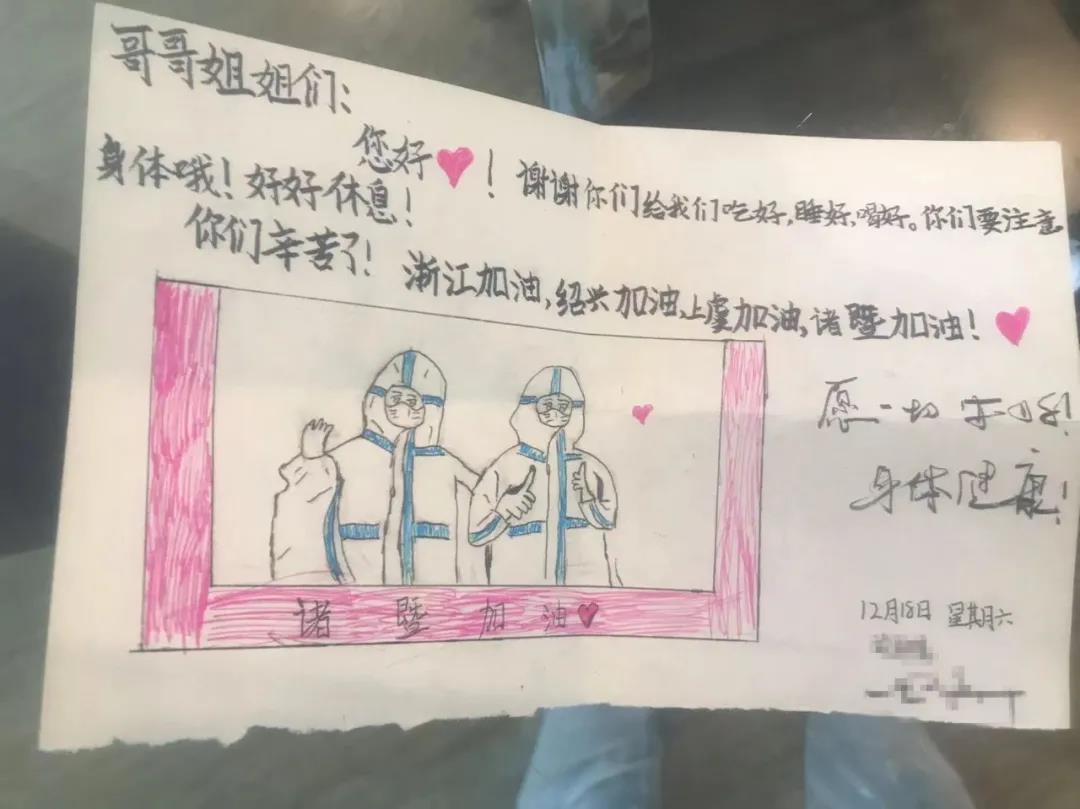 哥哥姐姐们：
您好！谢谢你们给我们吃好，睡好，喝好。你们要注意
身体哦！好好休息！
你们辛苦了！浙江加油，绍兴加油，上虞加油，诸暨加油！
愿一切都好！
身体健康！
诸暨加油
12月18日 星期六